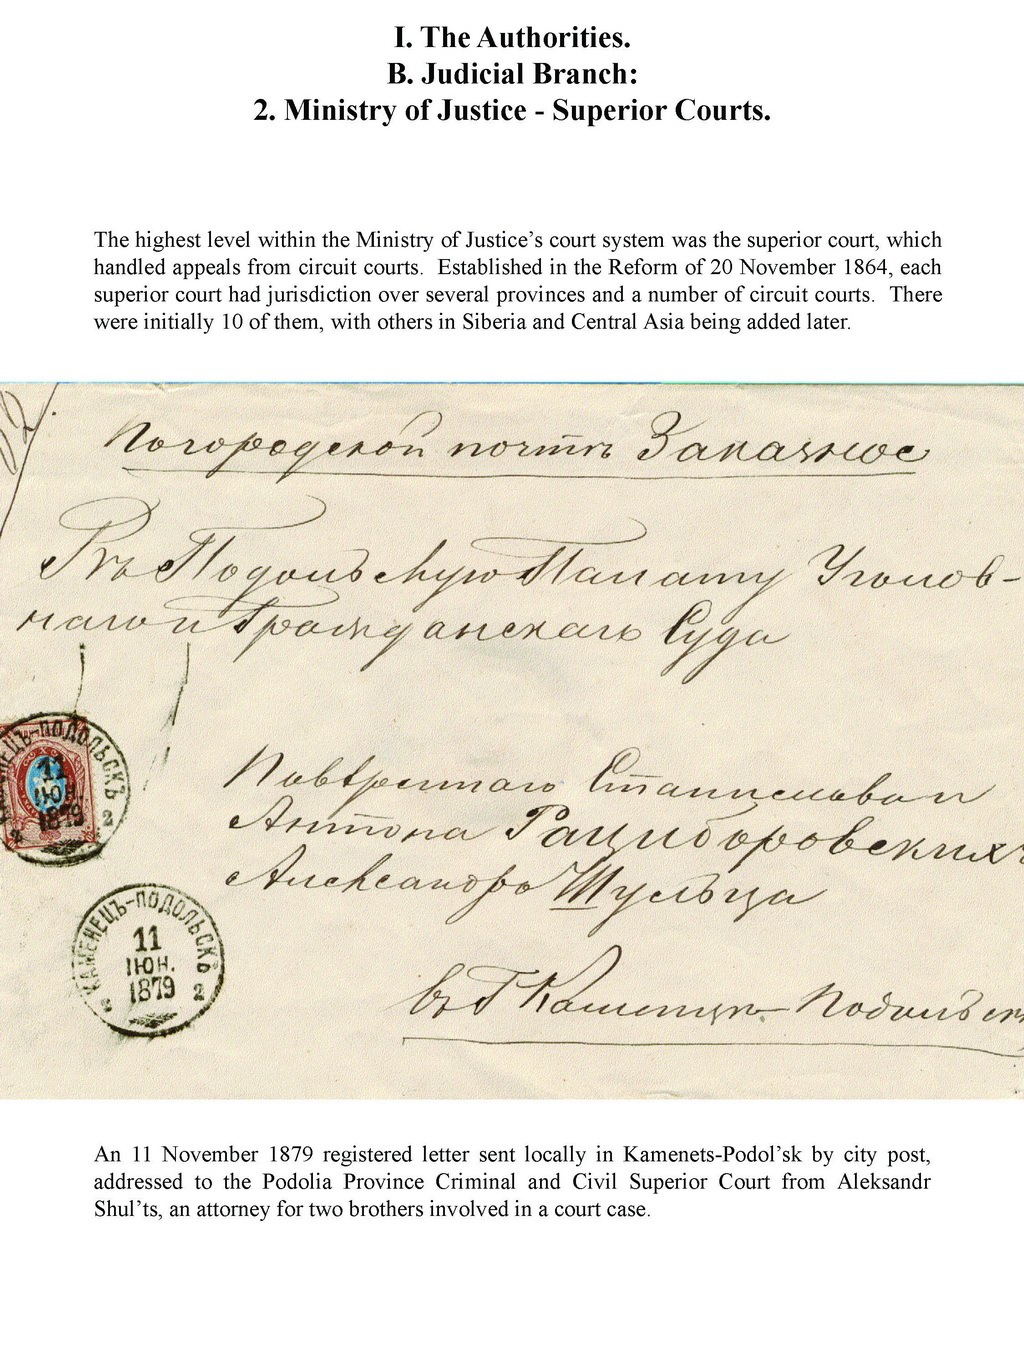 I. The Authorities.
B. Judicial Branch:
2. Ministry of Justice - Superior Courts.
The highest level within the Ministry of Justice’s court system was the superior court, which
handled appeals from circuit courts. Established in the Reform of 20 November 1864, each
superior court had jurisdiction over several provinces and a number of circuit courts. There
were initially 10 of them, with others in Siberia and Central Asia being added later.
Погородской почтѣ Заказное
Въ Подольскую Палату Уголов-
наго и Гражданскаго Суда
КАМЕНЕЦЪ-ПОДОЛЬСКЪ
11
ЮН.
1879
2 2
Повѣреннаго Станислава и
Антона Рациборовскихъ
Александра Шульца
КАМЕНЕЦЪ-ПОДОЛЬСКЪ
11
ІЮН.
1879
2 2
въ Г Каменцѣ-Подольск
An 11 November 1879 registered letter sent locally in Kamenets-Podol’sk by city post,
addressed to the Podolia Province Criminal and Civil Superior Court from Aleksandr
Shul’ts, an attorney for two brothers involved in a court case.